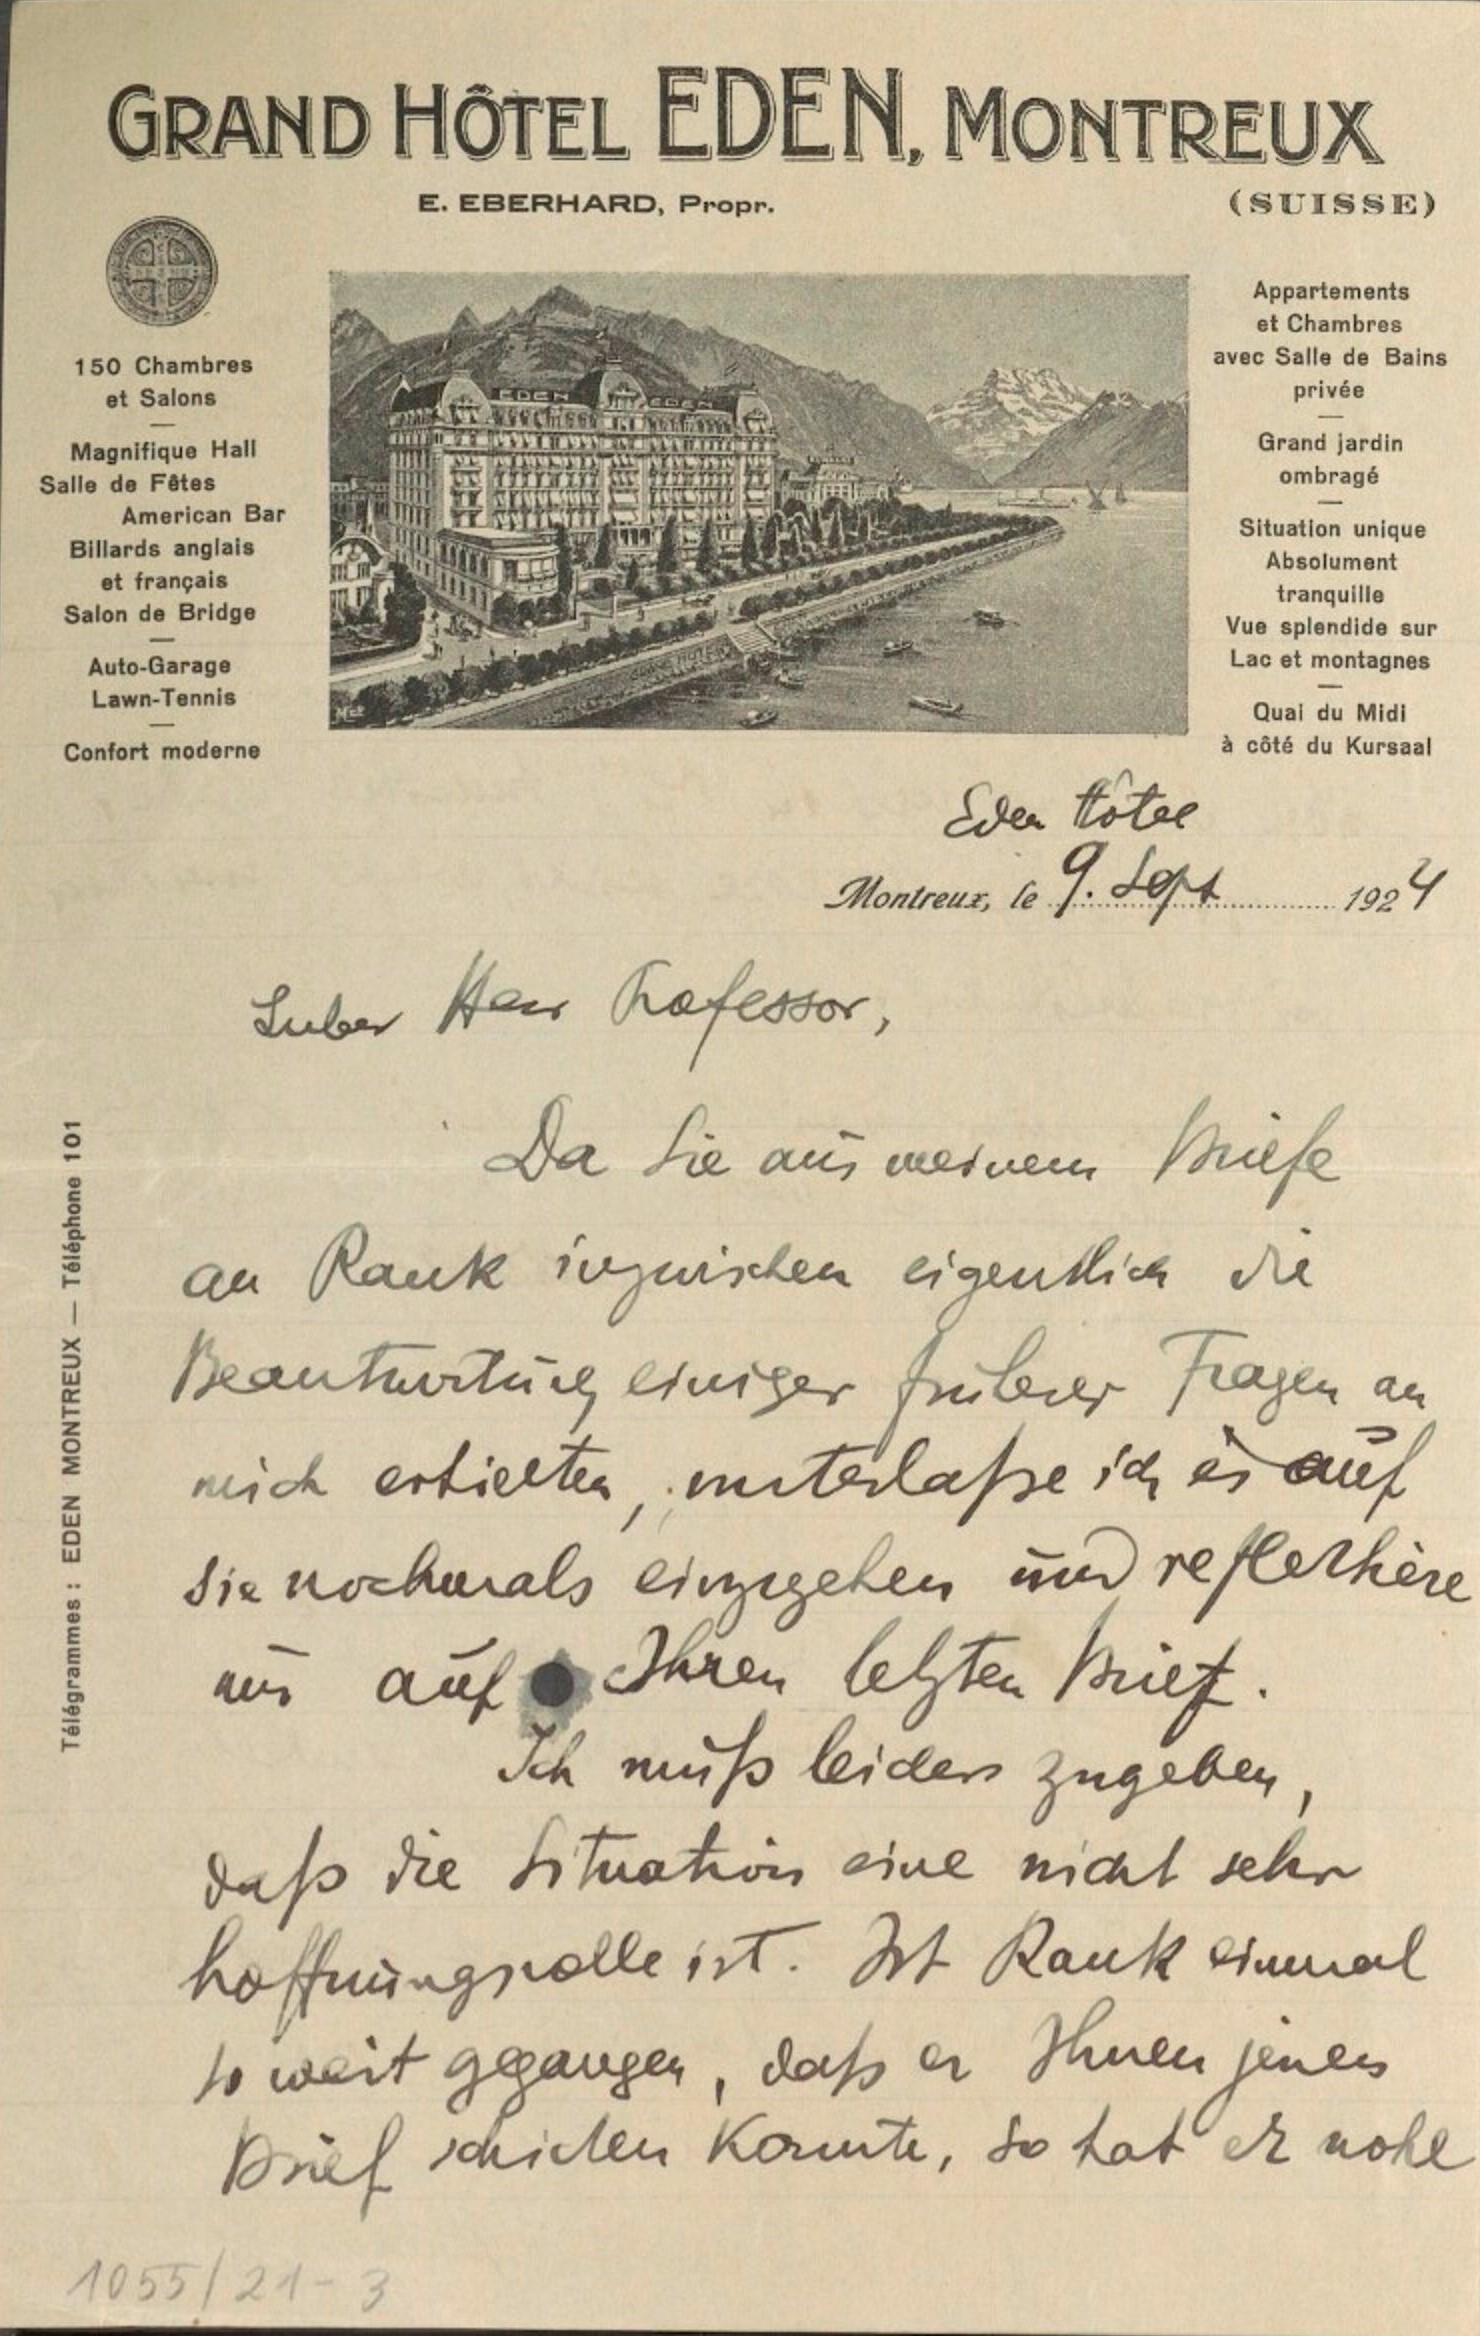 GRAND HÔTEL EDEN, MONTREUX
E. EBERHARD, Propr.
(SUISSE)
150 Chambres
et Salons
Magnifique Hall
Salle de Fêtes
American Bar
Billards anglais
et français
Salon de Bridge
Auto-Garage
Lawn-Tennis
Confort moderne
EDEN EDEN
Appartements
et Chambres
avec Salle de Bains
privée
Grand jardin
ombragé
Situation unique
Absolument
tranquille
Vue splendide sur
Lac et montagnes
Quai du Midi
à côté du Kursaal
Télégrammes : EDEN MONTREUX — Téléphone 101
Eden Hôtel
Montreux, le 9. Sept 1924
Lieber Herr Professor,
Da Sie aus meinem Briefe
an Rank inzwischen eigentlich die
Beantwortung einiger früherer Fragen an
mich erhielten, unterlaße ich es auf
sie nochmals einzugehen und reflektiere
nur auf Ihren letzten Brief.
Ich muß leider zugeben,
daß die Situation eine nicht sehr
hoffnungsvolle ist. Ist Rank einmal
so weit gegangen, daß er Ihnen jenen
Brief schicken konnte, so hat er wohl
1055/21-3